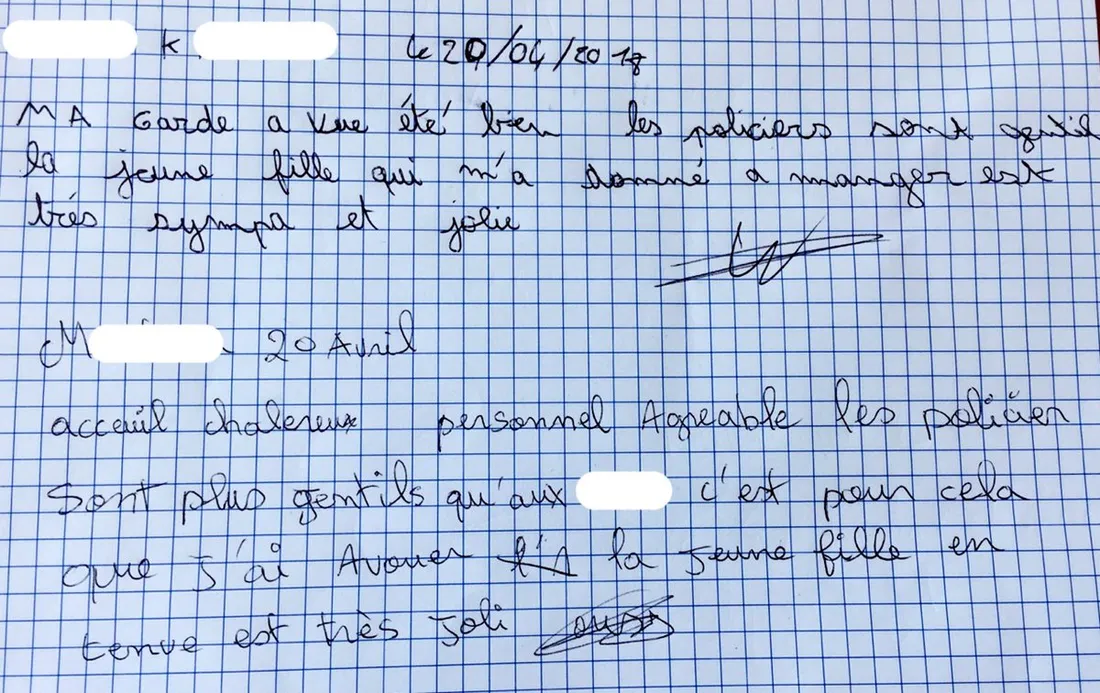 k le 20/04/2018
MA Garde a vue été bien les policiers sont gentil
la jeune fille qui m'a donné a manger est
trés sympa et jolie
M 20 Avril
acceuil chalereux personnel Agreable les policier
sont plus gentils qu'aux c'est pour cela
que j'ai Avouer la jeune fille en
tenue est très joli